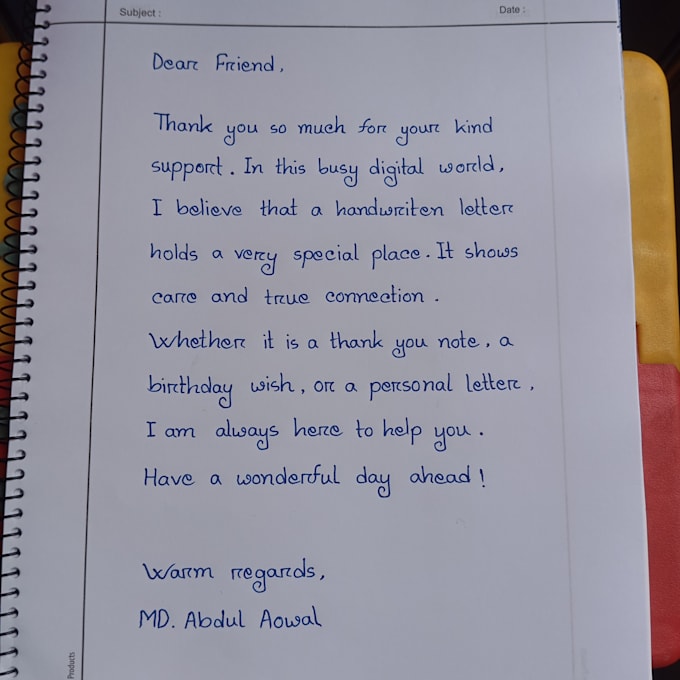 Subject :
Date :
Dear Friend,
Thank you so much for your kind
support. In this busy digital world,
I believe that a handwriten letter
holds a very special place. It shows
care and true connection.
Whether it is a thank you note, a
birthday wish, or a personal letter,
I am always here to help you.
Have a wonderful day ahead!
Warm regards,
MD. Abdul Aowal
Products